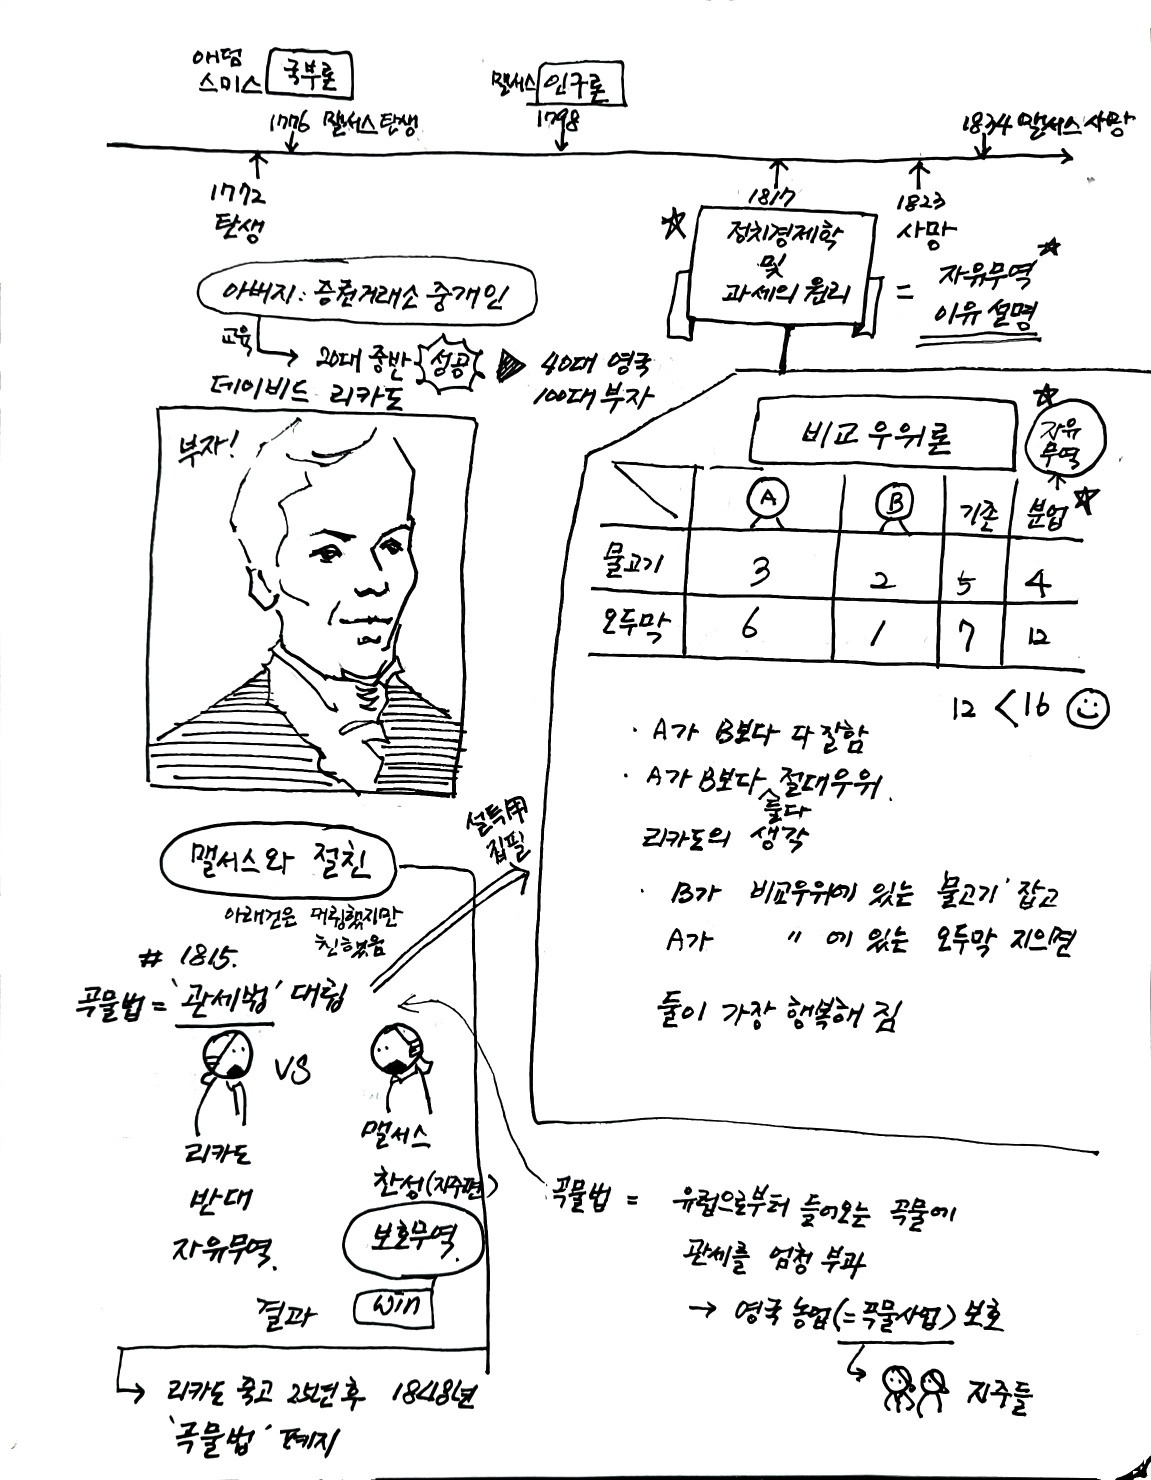 애덤
스미스 국부론
맬서스 인구론
1776 맬서스 탄생
1798
1834 맬서스 사망
1772
탄생
1817
1823
사망
정치경제학
및
과세의 원리
= 자유무역
이유 설명
아버지: 증권거래소 중개인
교육
20대 중반 성공 ▶ 40대 영국
100대 부자
데이비드 리카도
부자!
비교우위론
자유
무역
A B 기존 분업
물고기 3 2 5 4
오두막 6 1 7 12
12 < 16
· A가 B보다 다 잘함
· A가 B보다 절대우위.
둘다
리카도의 생각
· B가 비교우위에 있는 '물고기' 잡고
A가 〃에 있는 오두막 지으면
둘이 가장 행복해 짐
맬서스와 절친
아래건은 대립했지만
친했음
설득用
집필
# 1815.
곡물법 = '관세법' 대립
VS
리카도
반대
자유무역.
맬서스
찬성(지주편)
보호무역.
결과 win
리카도 죽고 25년 후 1848년
'곡물법' 폐지
곡물법 = 유럽으로부터 들어오는 곡물에
관세를 엄청 부과
→ 영국 농업(=곡물사업) 보호
지주들